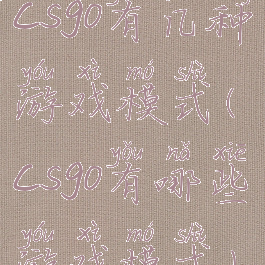 CSGO有几种
yóu xì mó shì
游戏模式(
yǒu nǎ xiē
CSGO有哪些
yóu xì mó shì
游戏模式)